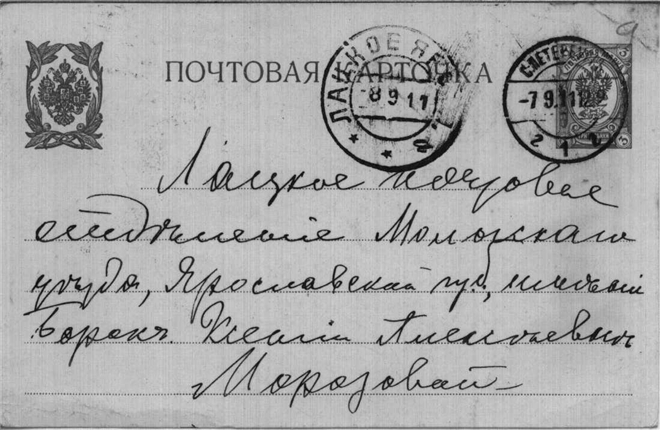 ПОЧТОВАЯ КАРТОЧКА
ЛАЦКОЕ ЯР.
8 9 11
С.ПЕТЕРБ
-7 9.11
2 1 2
3
Лацкое почтовое
отдѣленіе Моложскаго
уѣзда, Ярославской губ., имѣніе
Борокъ. Ксеніи Алексѣевнѣ
Морозовой